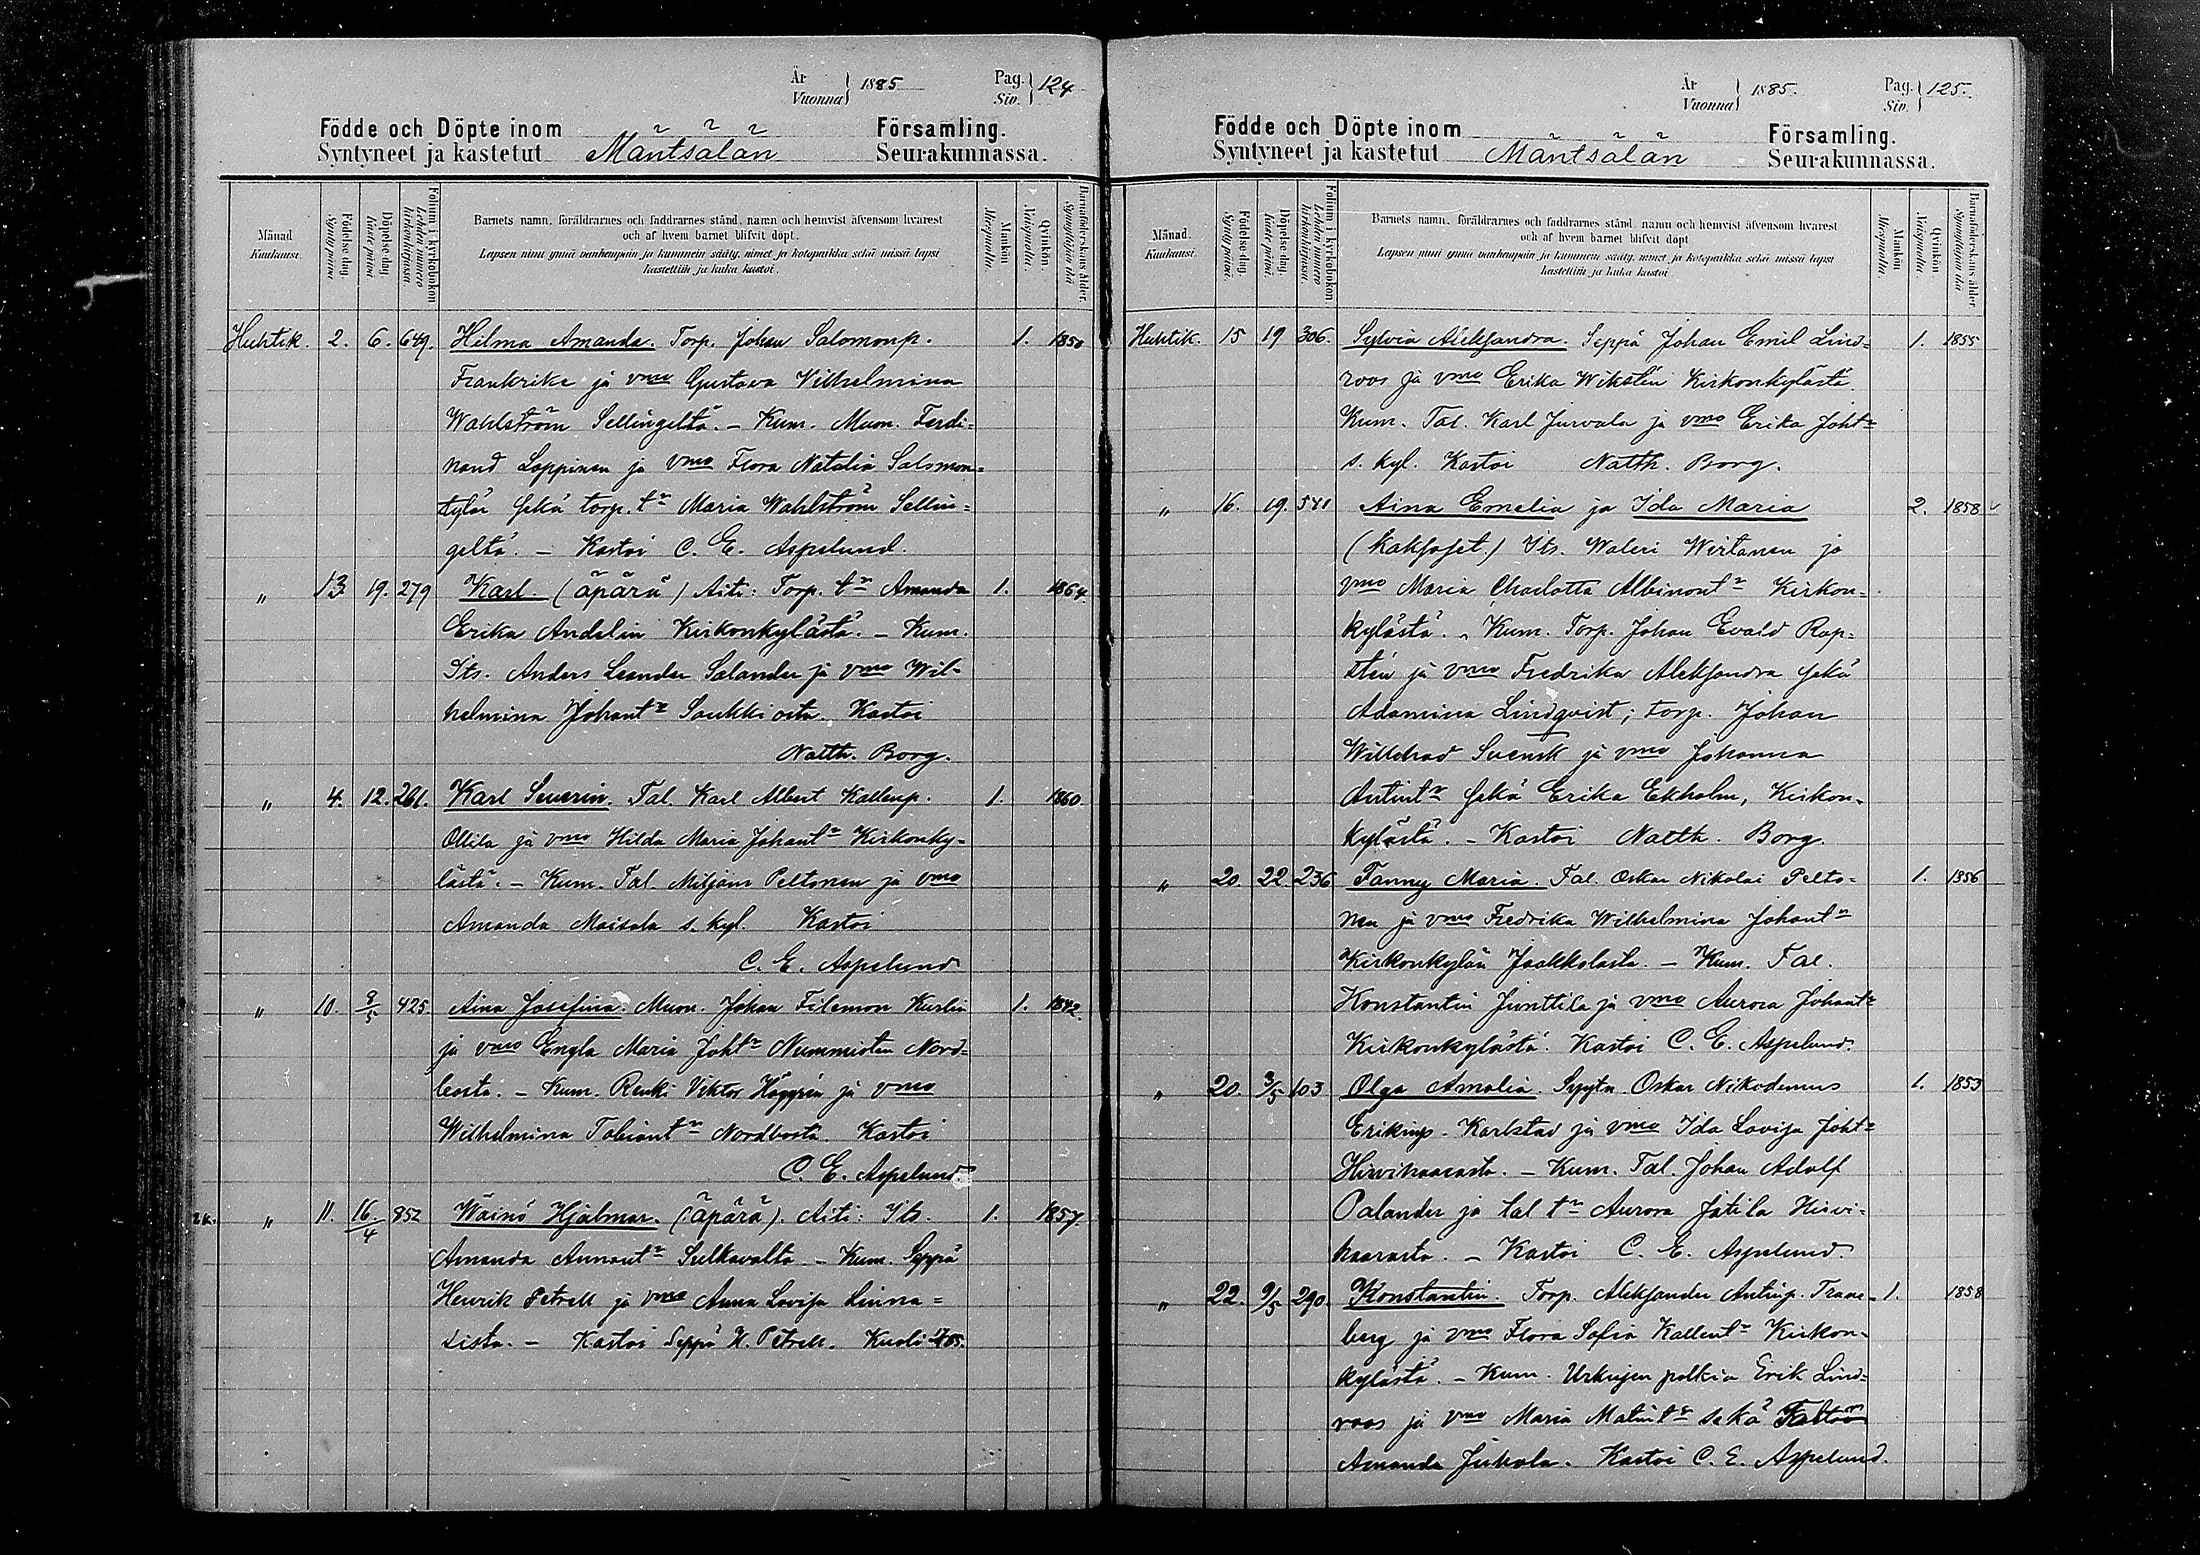 År
Vuonna } 1885
Pag.
Siv. } 124
Födde och Döpte inom
Syntyneet ja kastetut Mäntsälän
Församling.
Seurakunnassa.
Månad.
Kuukausi.
Födelse dag.
Syntypäivä.
Döpelse dag.
Kaste päivä.
Folium i kyrkoboken
Lehden numero kirkonkirjassa.
Barnets namn, föräldrarnes och faddrarnes stånd, namn och hemvist äfvensom hvarest
och af hvem barnet blifvit döpt.
Lapsen nimi ynnä vanhempain ja kummein sääty, nimet ja kotopaikka sekä missä lapsi
kastettiin ja kuka kastoi.
Mankön.
Miespuolia.
Qvinkön.
Naispuolia.
Barnaföderskans ålder.
Synnyttäjän ikä
Huhtik. 2. 6. 649. Hilma Amanda. Torp. Johan Salomonp. 1. 1850
Frankrike ja vmo Gustava Vilhelmina
Wahlström Sellingeltä. – Kum. Muon. Ferdi=
nand Loppinen ja vmo Flora Natalia Salomon=
tytär sekä torp. tr Maria Wahlström Sellin=
geltä. – Kastoi C. E. Aspelund.
" 13 19. 279 Karl. (äpärä) Äiti: Torp. tr Amanda 1. 1864.
Erika Andelin Kirkonkylästä. – Kum.
Its. Anders Leander Salander ja vmo Wil=
helmina Johantr Saukkiosta. Kastoi
Natth. Borg.
" 4. 12. 261. Karl Severin. Tal. Karl Albert Kallenp. 1. 1860.
Ollila ja vmo Hilda Maria Johantr Kirkonky=
lästä. – Kum. Tal. Miljam Peltonen ja vmo
Amanda Maisala s. kyl. Kastoi
C. E. Aspelund
" 10. 8/5 425 Aina Josefina. Muon. Johan Filemon Kurlin 1. 1842.
ja vmo Engla Maria Johtr Nummisten Nord=
bosta. – Kum. Renki Viktor Häggrén ja vmo
Wilhelmina Tobiantr Nordbosta. Kastoi
C. E. Aspelund.
" 11. 16/4 852 Wäinö Hjalmar. (äpärä). Äiti: Its. 1. 1857.
Amanda Annantr Sulkavalta. – Kum. Seppä
Henrik Petrell ja vmo Anna Lovisa Linna=
sista. – Kastoi Seppä H. Petrell. Kuoli
År
Vuonna } 1885.
Pag.
Siv. } 125.
Födde och Döpte inom
Syntyneet ja kastetut Mäntsälän
Församling.
Seurakunnassa.
Månad.
Kuukausi.
Födelse dag.
Syntypäivä.
Döpelse dag.
Kaste päivä.
Folium i kyrkoboken
Lehden numero kirkonkirjassa.
Barnets namn, föräldrarnes och faddrarnes stånd, namn och hemvist äfvensom hvarest
och af hvem barnet blifvit döpt
Lapsen nimi ynnä vanhempain ja kummein sääty, nimet ja kotopaikka sekä missä lapsi
kastettiin ja kuka kastoi
Mankön.
Miespuolia.
Qvinkön.
Naispuolia.
Barnaföderskans ålder.
Synnyttäjän ikä
Huhtik. 15 19 306. Sylvia Aleksandra. Seppä Johan Emil Lind= 1. 1855
roos ja vmo Erika Wikstén Kirkonkylästä
Kum. Tal. Karl Jurvala ja vmo Erika Johtr
s. kyl. Kastoi Natth. Borg.
" 16. 19. 541 Aina Emelia ja Ida Maria 2. 1858
(kaksoset.) Its. Waleri Wirtanen ja
vmo Maria Charlotta Albinontr Kirkon=
kylästä. – Kum. Torp. Johan Evald Rap=
stén ja vmo Fredrika Aleksandra sekä
Adamina Lindqvist; torp. Johan
Willehad Svensk ja vmo Johanna
Antintr sekä Erika Ekholm, Kirkon=
kylästä. – Kastoi Natth. Borg.
" 20. 22. 236 Fanny Maria. Tal. Oskar Nikolai Pelto= 1. 1856
nen ja vmo Fredrika Wilhelmina Johantr
Kirkonkylän Jaakkolasta. – Kum. Tal.
Konstantin Junttila ja vmo Aurora Johantr
Kirkonkylästä. Kastoi C. E. Aspelund.
" 20. 3/5 103 Olga Amalia. Spytn. Oskar Nikodemus 1. 1853
Erikinp. Karlstad ja vmo Ida Lovisa Johtr
Hirvihaarasta. – Kum. Tal. Johan Adolf
Palander ja tal tr Aurora Jätila Hirvi=
haarasta. – Kastoi C. E. Aspelund.
" 22. 9/5 290 Konstantin. Torp. Aleksander Antinp. Trane= 1. 1858
berg ja vmo Flora Sofia Kallentr Kirkon=
kylästä. – Kum. Urkujen polkia Erik Lind=
roos ja vmo Maria Matintr sekä
Amanda Jukola. Kastoi C. E. Aspelund.